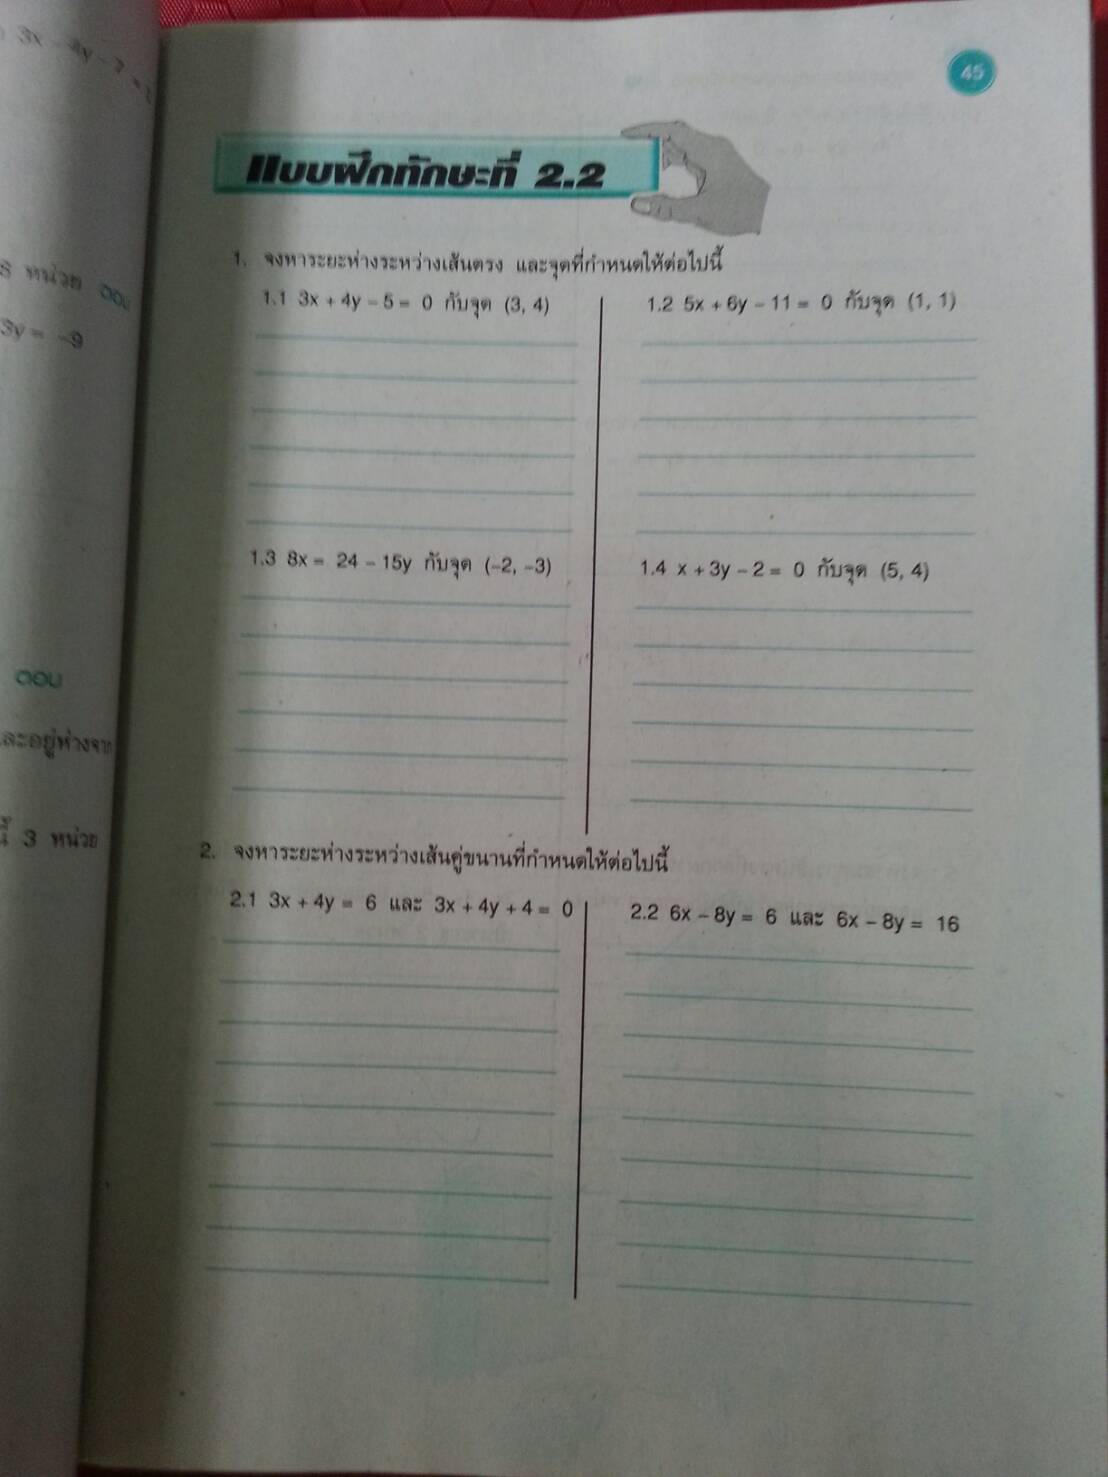 3x – 4y – 7 =
45
แบบฝึกทักษะที่ 2.2
1. จงหาระยะห่างระหว่างเส้นตรง และจุดที่กำหนดให้ต่อไปนี้
1.1 3x + 4y – 5 = 0 กับจุด (3, 4)
1.2 5x + 6y – 11 = 0 กับจุด (1, 1)
หน่วย ตอบ
3y = –9
1.3 8x = 24 – 15y กับจุด (–2, –3)
1.4 x + 3y – 2 = 0 กับจุด (5, 4)
ตอบ
ละอยู่ห่างจาก
3 หน่วย
2. จงหาระยะห่างระหว่างเส้นคู่ขนานที่กำหนดให้ต่อไปนี้
2.1 3x + 4y = 6 และ 3x + 4y + 4 = 0
2.2 6x – 8y = 6 และ 6x – 8y = 16